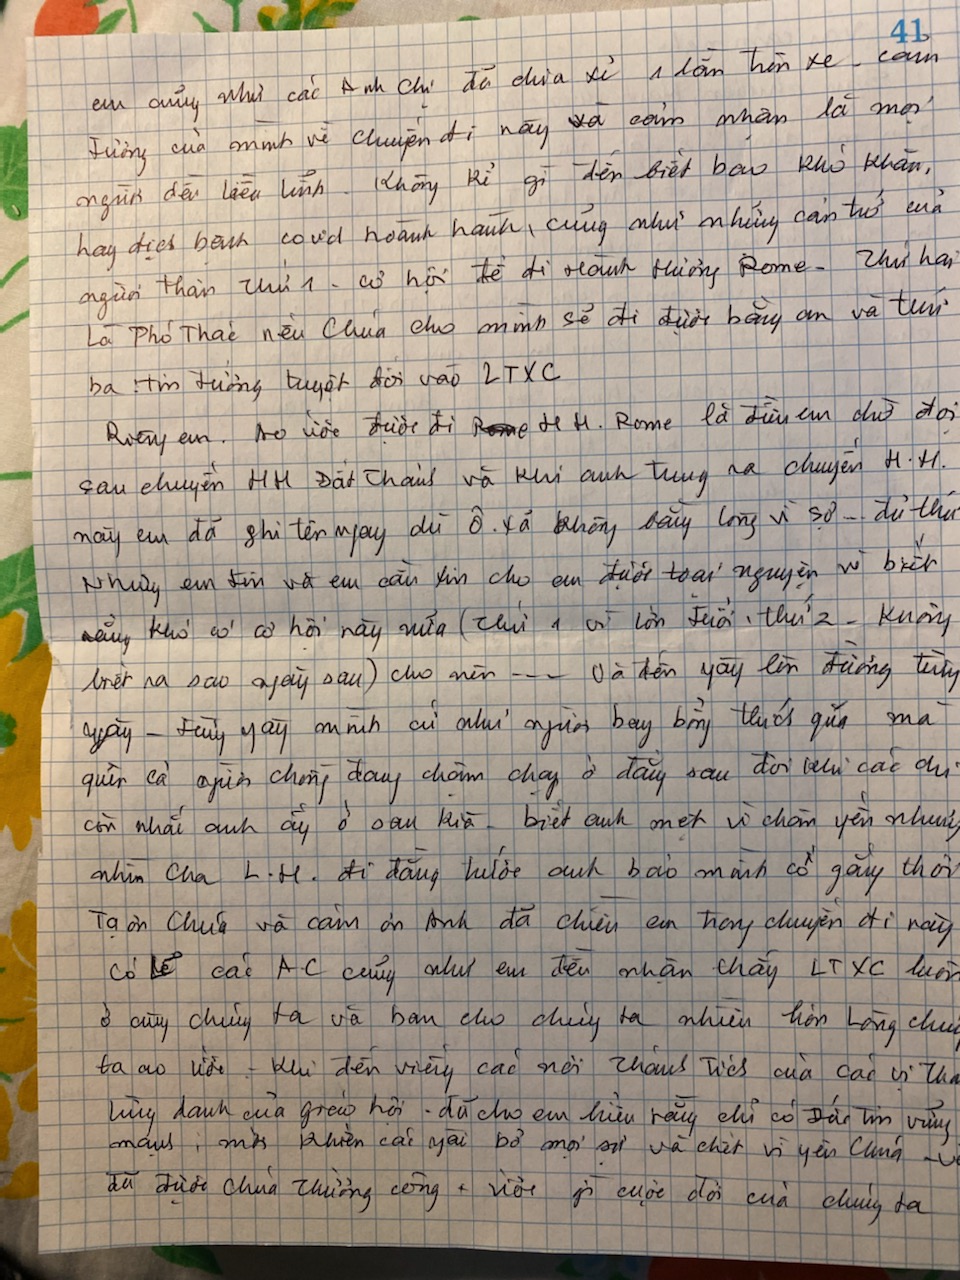 41
em cũng như các Anh Chị đã chia xẻ 1 lần trên xe - cảm
tưởng của mình về chuyến đi này và cảm nhận là mọi
người đều liều lĩnh. Không kể gì đến biết bao khó khăn,
hay dịch bệnh covid hoành hành, cũng như những cản trở của
người thân Thứ 1 - cơ hội để đi Hành Hương Rome - Thứ hai
Là Phó Thác nếu Chúa cho mình sẽ đi được bằng an và thứ
ba: Tin tưởng tuyệt đối vào LTXC
Riêng em. Ao ước được đi H H. Rome là điều em chờ đợi
sau chuyến HH Đất Thánh và khi anh tung ra chuyến H.H.
này em đã ghi tên ngay dù Ô.Xã không bằng lòng vì sợ ... đủ thứ
Nhưng em tin và em cầu xin cho em được toại nguyện vì biết
rằng khó có cơ hội này nữa (Thứ 1 vì lớn tuổi, thứ 2 - không
biết ra sao ngày sau) cho nên ---- Và đến ngày lên đường từng
ngày - từng ngày mình cứ như người bay bổng thước qua mà
quên cả người chồng đang chậm chạp ở đằng sau đôi khi các chị
còn nhắc anh ấy ở sau kìa - biết anh mệt vì chân yếu nhưng
nhìn Cha L.H. đi đằng trước anh bảo mình cố gắng thôi
Tạ ơn Chúa và cảm ơn Anh đã chiều em trong chuyến đi này
Có lẽ các AC cũng như em đều nhận thấy LTXC luôn
ở cùng chúng ta và ban cho chúng ta nhiều hơn Lòng chúng
ta ao ước - Khi đến viếng các nơi Thánh Tích của các vị Thá
lừng danh của giáo hội - đã cho em hiểu rằng chỉ có Đức tin vững
mạnh; mới khiến các ngài bỏ mọi sự và chết vì yêu Chúa - và
đã được Chúa Thưởng công + ước gì cuộc đời của chúng ta